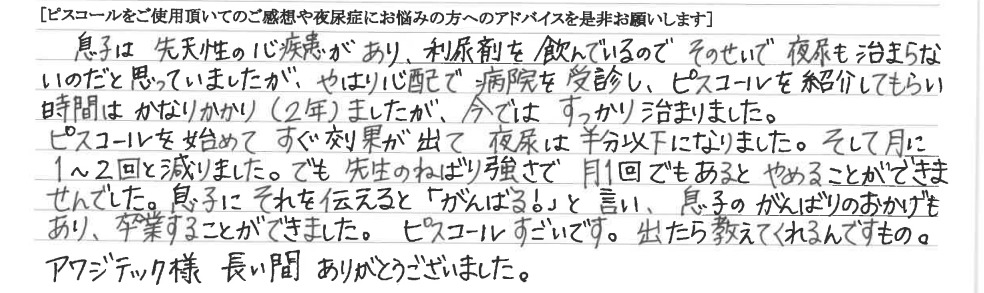 [ピスコールをご使用頂いてのご感想や夜尿症にお悩みの方へのアドバイスを是非お願いします]
息子は先天性の心疾患があり、利尿剤を飲んでいるのでそのせいで夜尿も治まらな
いのだと思っていましたが、やはり心配で病院を受診し、ピスコールを紹介してもらい
時間はかなりかかり(2年)ましたが、今ではすっかり治まりました。
ピスコールを始めてすぐ効果が出て夜尿は半分以下になりました。そして月に
1〜2回と減りました。でも先生のねばり強さで月1回でもあるとやめることができま
せんでした。息子にそれを伝えると「がんばる!」と言い、息子のがんばりのおかげも
あり、卒業することができました。ピスコールすごいです。出たら教えてくれるんですもの。
アワジテック様 長い間 ありがとうございました。